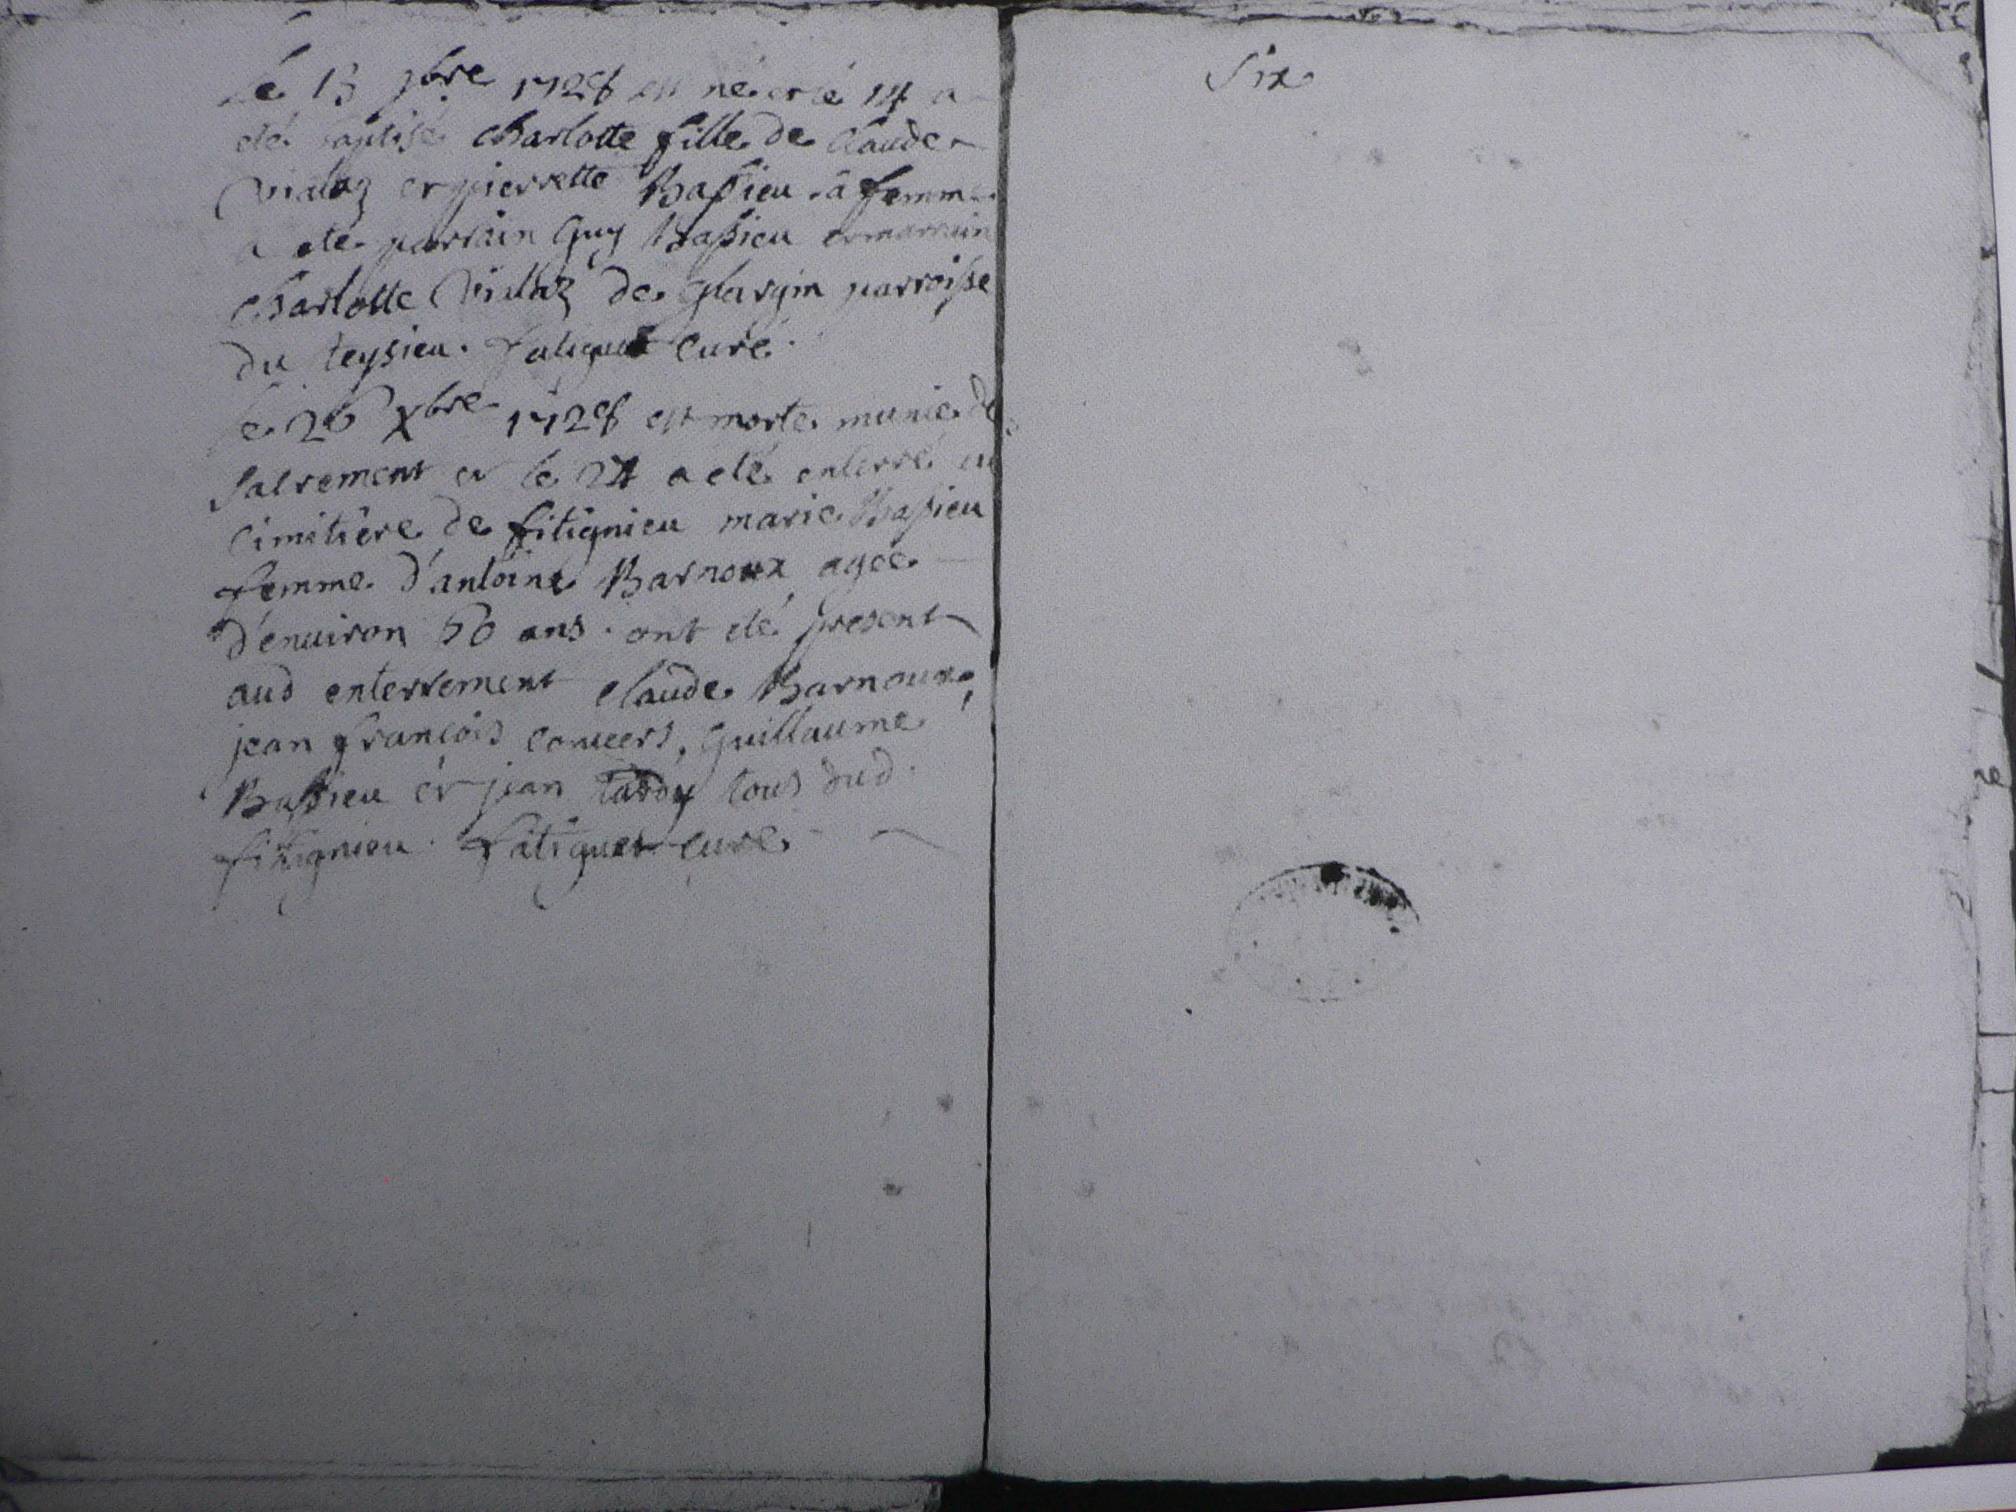 Le 13 9bre 1728 est né et le 14 a
eté baptisé charlotte fille de claude
vialaz et pierrette Bassieu sa femme
a eté parrain Guy Bassieu et marraine
charlotte vialaz de parroisse
du teysieu. fatiguet curé.
Le 26 Xbre 1728 est morte munie de
sacrement et le 27 a eté enterré au
cimitière de fitignieu marie Bassieu
femme d'antoine Barnoux agée
d'enuiron 50 ans. ont eté present
aud enterrement claude Barnoux,
jean françois conuers, Guillaume
Bassieu et jean tardy tous dud.
fitignieu. fatiguet curé.
Six